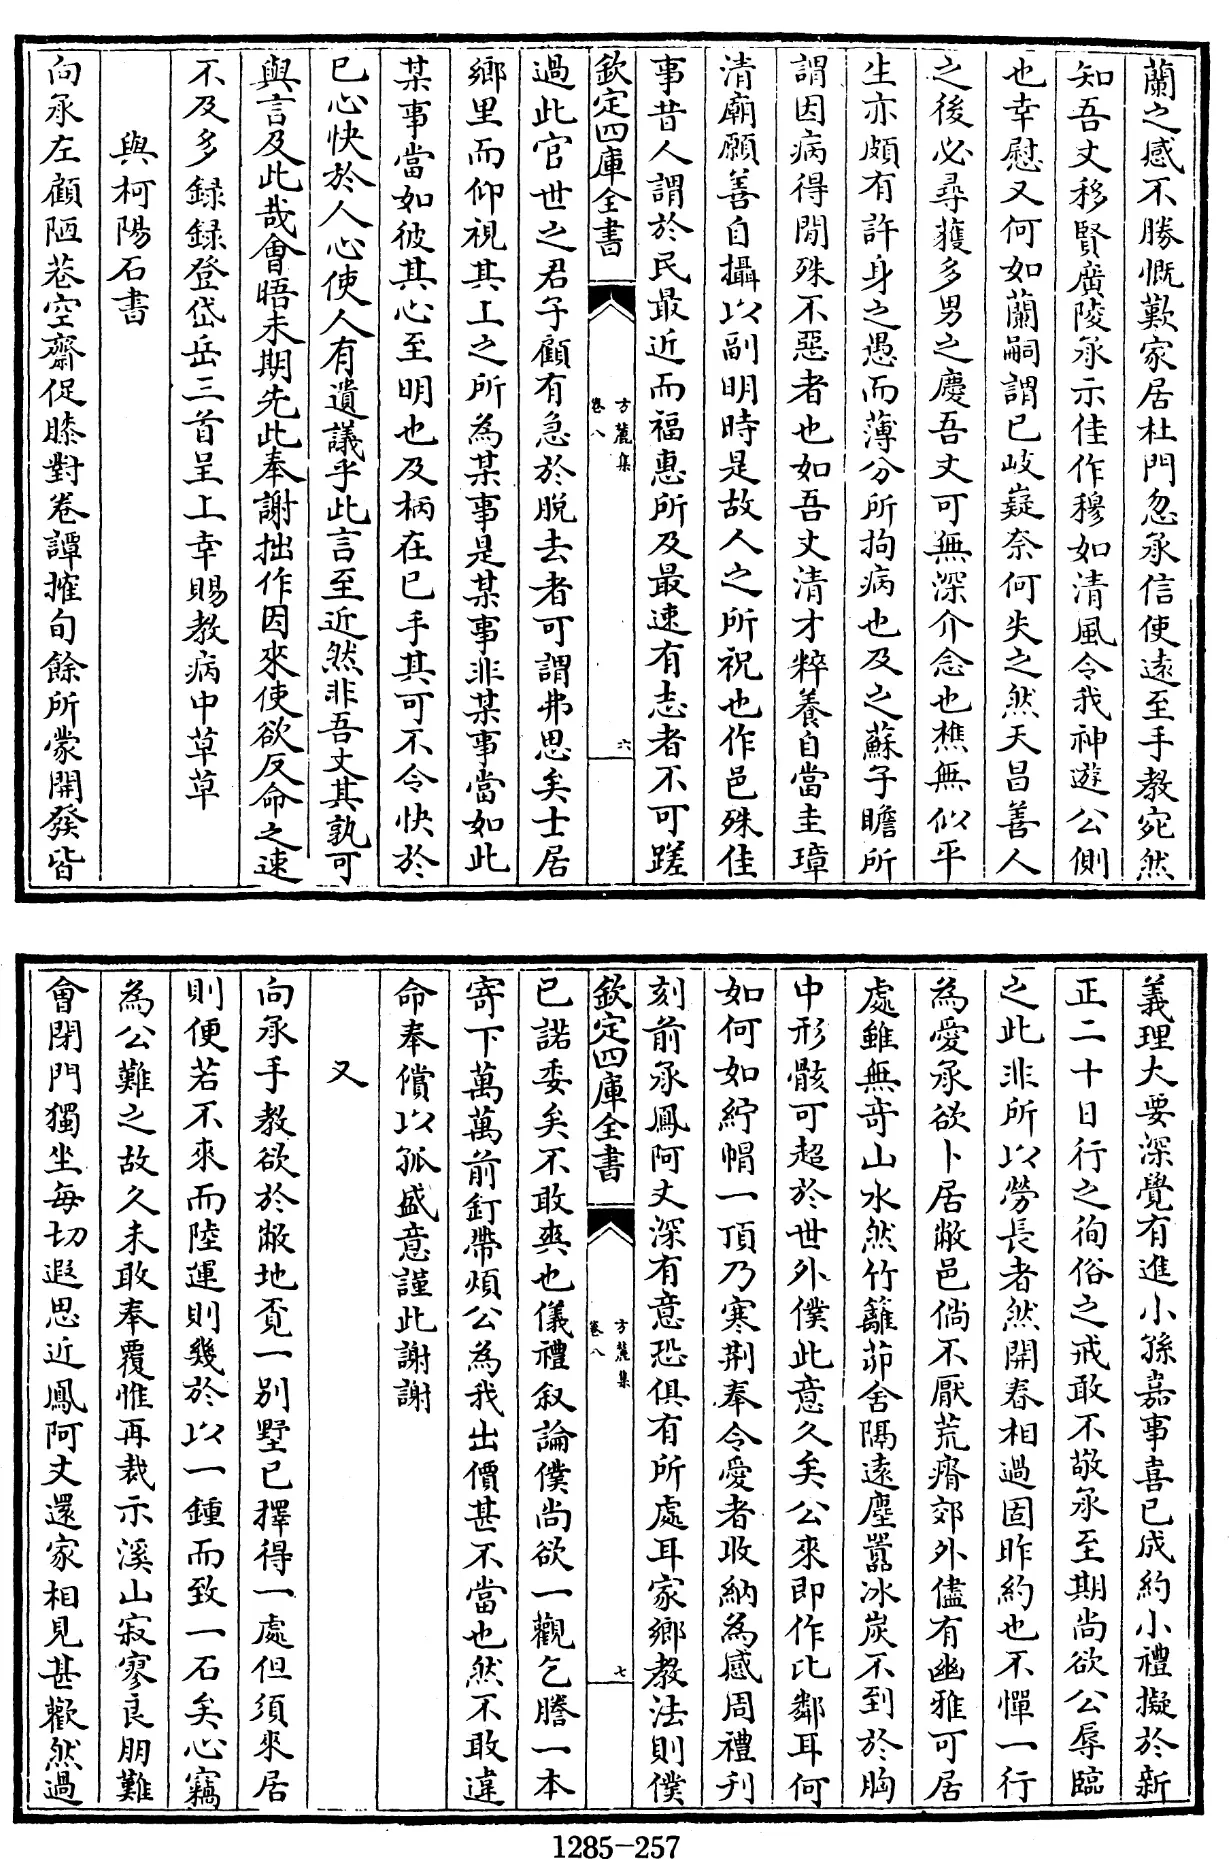 蘭之感不勝慨歎家居杜門忽承信使遠至手教宛然
知吾丈移賢廣陵承示佳作穆如清風令我神遊公側
也幸慰又何如蘭嗣謂已岐嶷奈何失之然天昌善人
之後必尋獲多男之慶吾丈可無深介念也樵無似平
生亦頗有許身之愚而薄分所拘病也及之蘇子瞻所
謂因病得閒殊不惡者也如吾丈清才粹養自當圭璋
清廟願善自攝以副明時是故人之所祝也作邑殊佳
事昔人謂於民最近而福惠所及最速有志者不可蹉
欽定四庫全書
方麓集
卷八
六
過此官世之君子顧有急於脱去者可謂弗思矣士居
鄉里而仰視其上之所為某事是某事非某事當如此
某事當如彼其心至明也及柄在已手其可不令快於
已心快於人心使人有遺議乎此言至近然非吾丈其孰可
與言及此哉會晤未期先此奉謝拙作因來使欲反命之速
不及多録録登岱岳三首呈上幸賜教病中草草
與柯陽石書
向承左顧陋巷空齋促膝對卷譚搉旬餘所蒙開發皆
義理大要深覺有進小孫嘉事喜已成約小禮擬於新
正二十日行之徇俗之戒敢不敬承至期尚欲公辱臨
之此非所以勞長者然開春相過固昨約也不憚一行
為愛承欲卜居敝邑倘不厭荒瘠郊外儘有幽雅可居
處雖無奇山水然竹籬茆舍隔遠塵囂冰炭不到於胸
中形骸可超於世外僕此意久矣公來即作比鄰耳何
如何如紵帽一頂乃寒荆奉令愛者收納為感周禮刋
刻前承鳳阿丈深有意恐俱有所處耳家鄉教法則僕
欽定四庫全書
方麓集
卷八
七
已諾委矣不敢爽也儀禮叙論僕尚欲一觀乞謄一本
寄下萬萬前釘帶煩公為我出價甚不當也然不敢違
命奉償以孤盛意謹此謝謝
又
向承手教欲於敝地覔一别墅已擇得一處但須來居
則便若不來而陸運則幾於以一鍾而致一石矣心竊
為公難之故久未敢奉覆惟再裁示溪山寂寥良朋難
會閉門獨坐每切遐思近鳳阿丈還家相見甚歡然過
1285-257